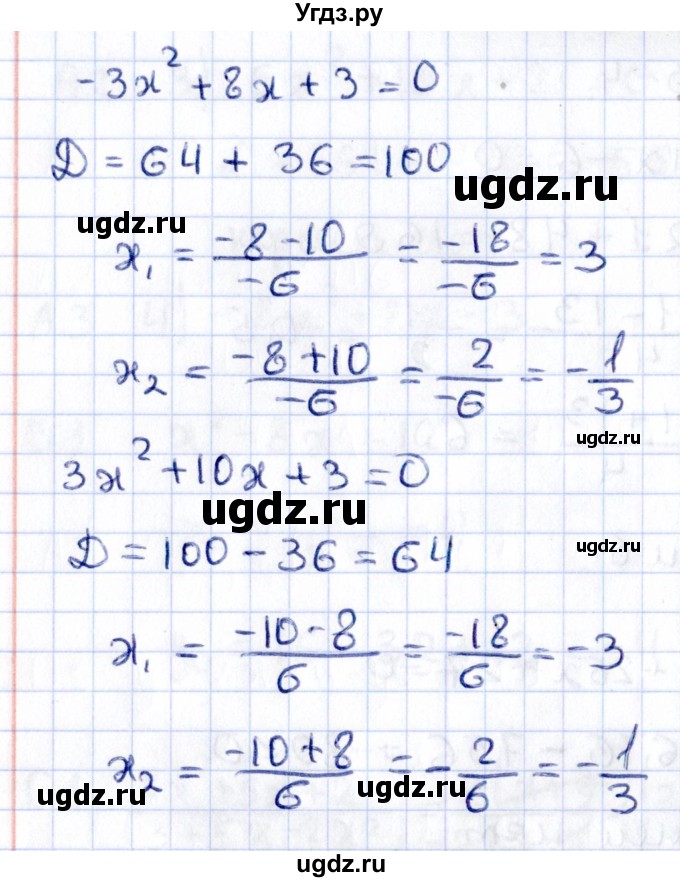 Угдз.ру
-3x² + 8x + 3 = 0
D = 64 + 36 = 100
ugdz.ru
ugdz.ru
x₁ = (-8-10)/(-6) = (-18)/(-6) = 3
x₂ = (-8+10)/(-6) = 2/(-6) = -1/3
ugdz.ru
3x² + 10x + 3 = 0
ugdz.ru
D = 100 - 36 = 64
ugdz.ru
x₁ = (-10-8)/6 = (-18)/6 = -3
x₂ = (-10+8)/6 = -2/6 = -1/3
ugdz.ru
ugdz.ru
ugdz.ru